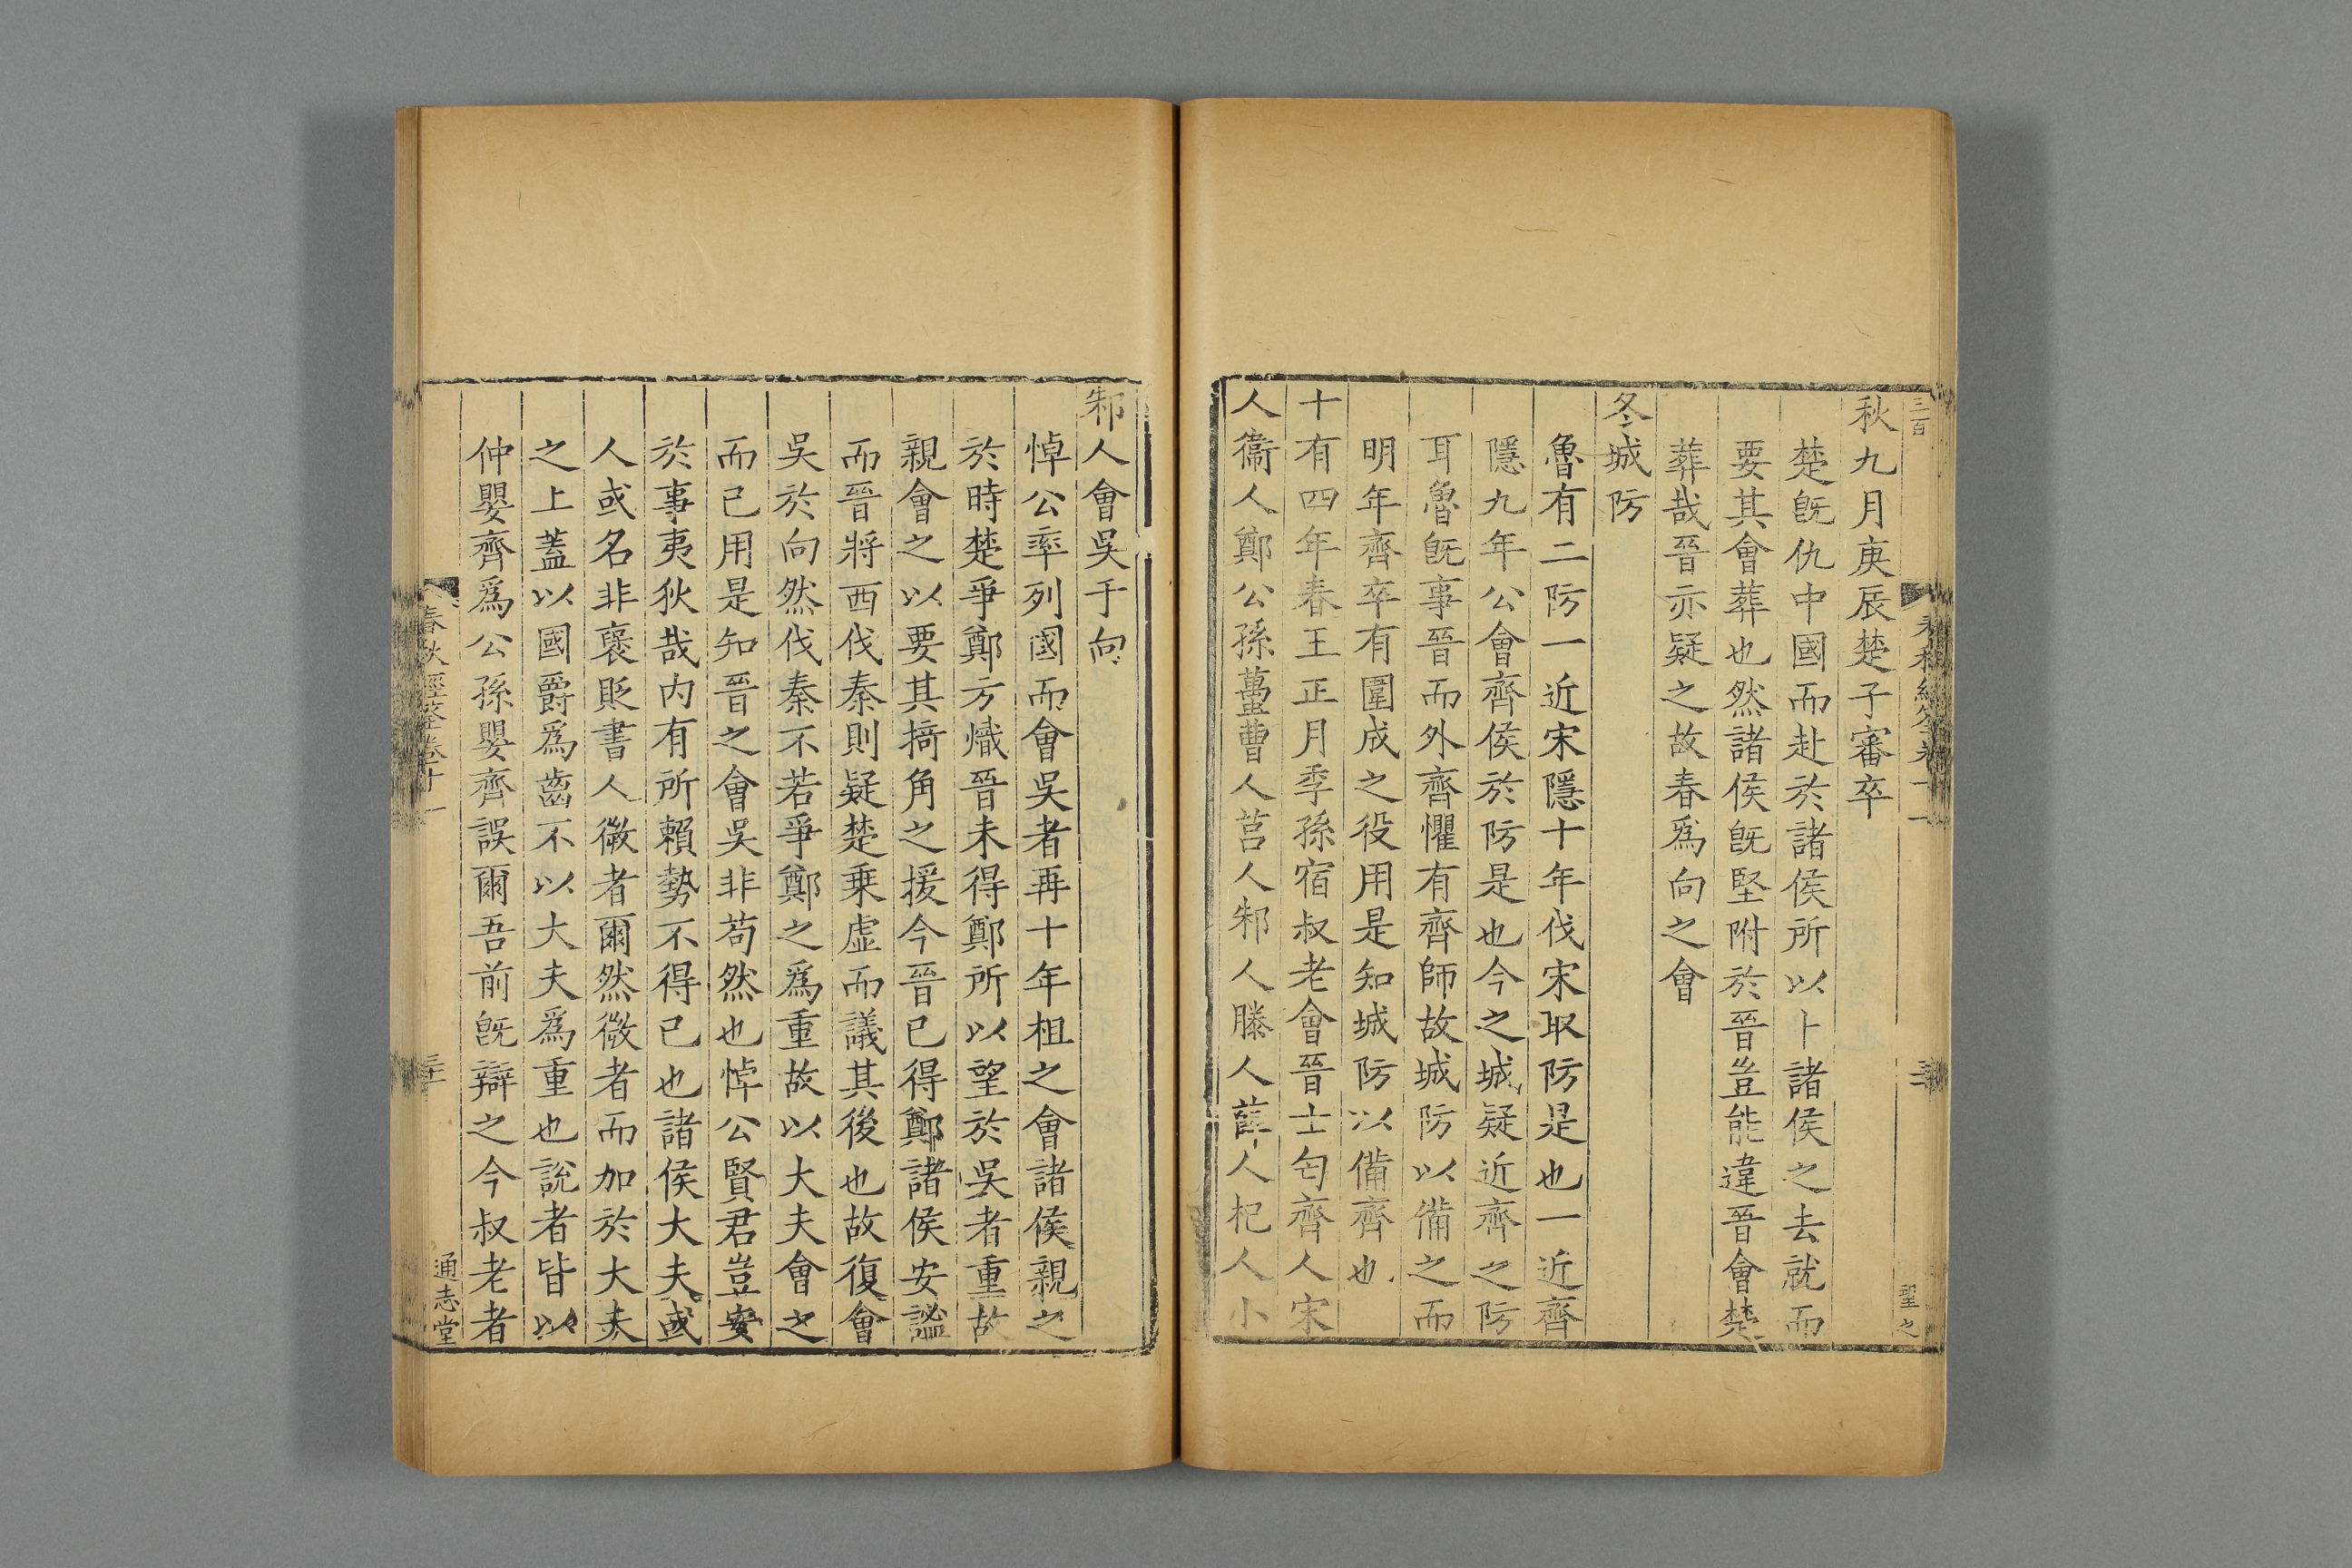 三百
秋九月庚辰楚子審卒
楚旣仇中國而赴於諸侯所以卜諸侯之去就而
要其會葬也然諸侯旣堅附於晉豈能違晉會楚
葬哉晉亦疑之故春爲向之會
冬城防
魯有二防一近宋隱十年伐宋取防是也一近齊
隱九年公會齊侯於防是也今之城疑近齊之防
耳魯旣事晉而外齊懼有齊師故城防以備之而
明年齊卒有圍成之役用是知城防以備齊也
十有四年春王正月季孫宿叔老會晉士匄齊人宋
人衞人鄭公孫蠆曹人莒人邾人滕人薛人杞人小
聖之
邾人會吳于向
悼公率列國而會吳者再十年柤之會諸侯親之
於時楚爭鄭方熾晉未得鄭所以望於吳者重故
親會之以要其掎角之援今晉已得鄭諸侯安謐
而晉將西伐秦則疑楚乗虛而議其後也故復會
吳於向然伐秦不若爭鄭之爲重故以大夫會之
而已用是知晉之會吳非苟然也悼公賢君豈安
於事夷狄哉内有所賴勢不得已也諸侯大夫或
人或名非襃貶書人微者爾然微者而加於大夫
之上蓋以國爵爲齒不以大夫爲重也說者皆以
仲嬰齊爲公孫嬰齊誤爾吾前旣辯之今叔老者
春秋經筌卷十一
通志堂